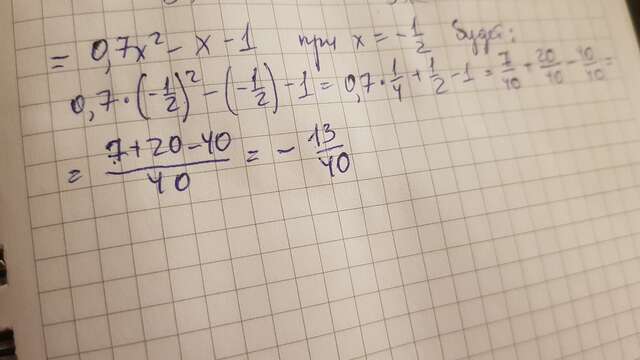 = 0,7x² - x - 1 при x = -1/2 будет:
0,7 · (-1/2)² - (-1/2) - 1 = 0,7 · 1/4 + 1/2 - 1 = 7/40 + 20/40 - 40/40 =
= (7+20-40)/40 = - 13/40